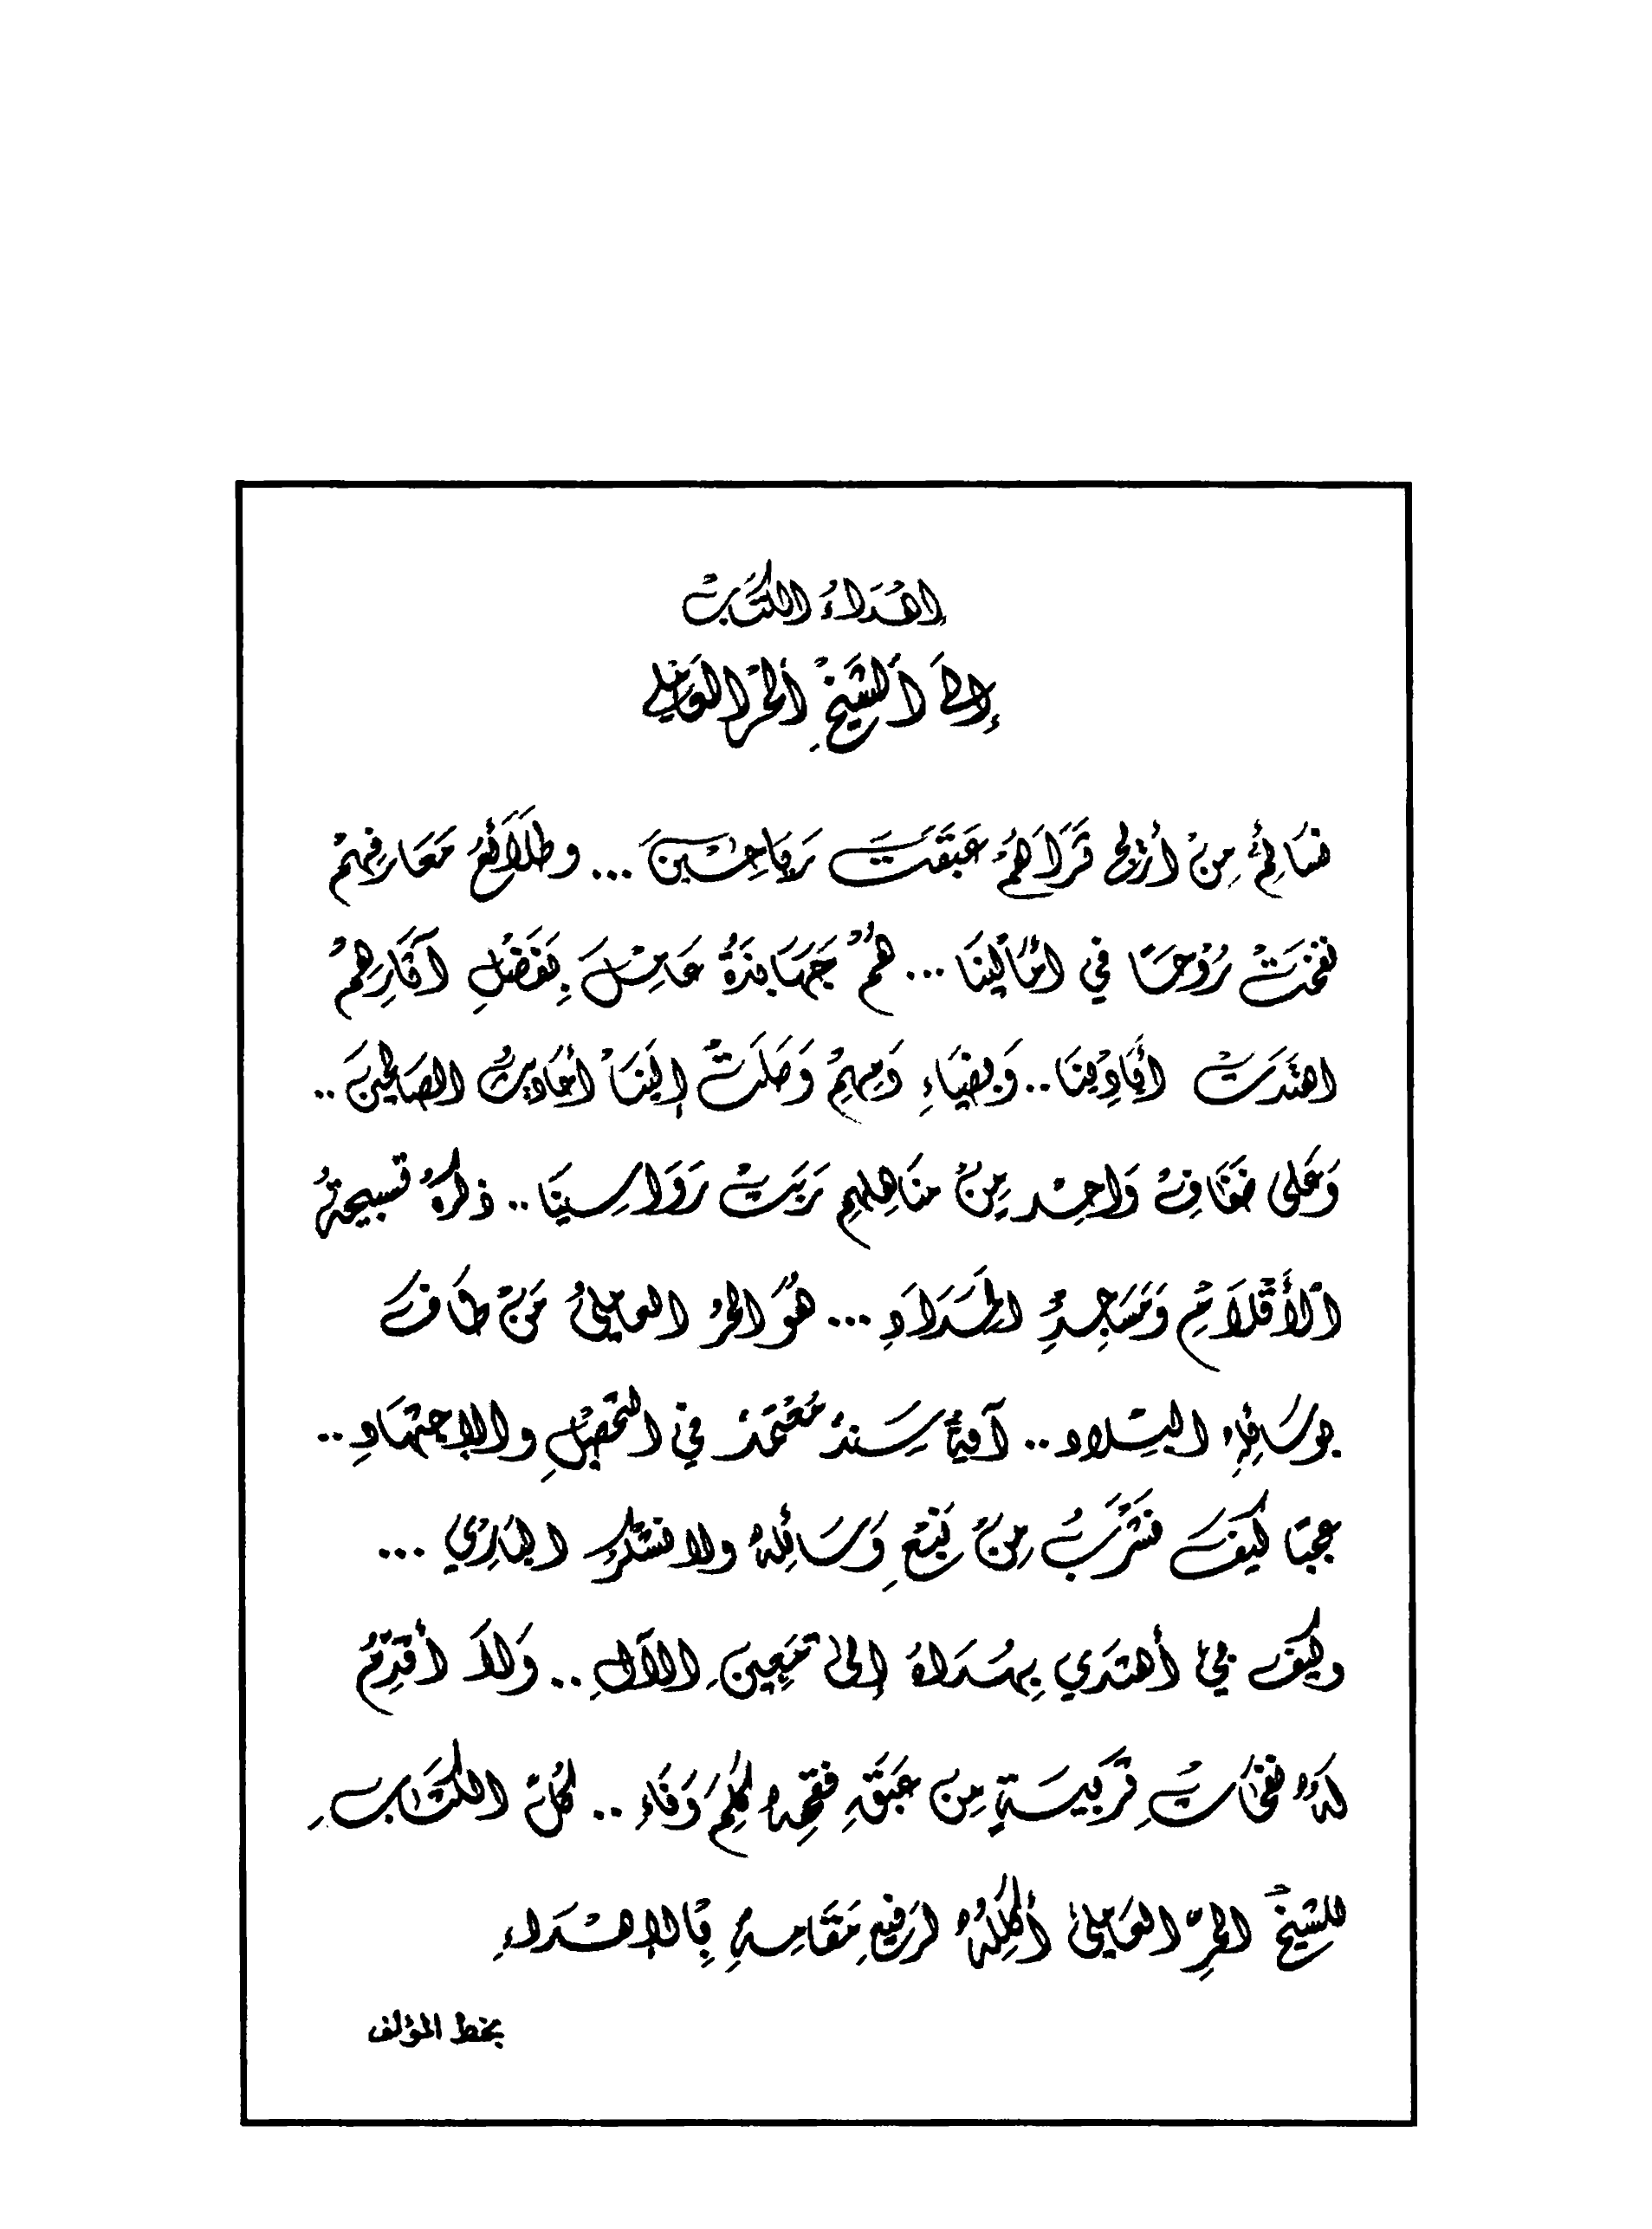 إهْدَاءُ الكتَابْ
إلىَ اَلشَيْخِ اَلحُر العَامِلي
نسَائِمُ مِنْ أرَيج ثَرَاَهُمْ عَبَقَتَ رَيَاحِيْنَ ... وطَلَائعُ مَعَارِفِهمْ
نفخَتْ رُوْحَاً في أمَالينَا ... هُمْ جَهَابِذَةُ عَامِلَ بِفَضْلِ آثَارِهِمْ
اهتَدَتْ أيَادِيْنَا .. وَبضيَاءِ دَمِهِمْ وَصَلَتْ إليْنَا أحَاديثُ الصَالحِينَ ..
وَعَلى ضفَافِ وَاحِدٍ مِنْ منَاهِلِهِمِ رَبَتْ رَوَاسِيْنَا .. ذكرهُ تسبيحةُ
اَلأَقْلَامِ وَمَسَاجِدِ المِدَادِ ... هُوَ الحُرُ العَامليُ مَنْ طَافَ
بوسَائِلِهِ البِلاد .. آيةُ سَنَدٌ مُعْتمَدٌ في التَحْصِيْلِ والإجتهَادِ ..
عجبَاً كيَفَ نَشْرَبُ مِنْ نَبْعِ وَسَائِلهُ ولا نشكُر البَارِيْ ...
وكيَف بيْ أهتدَي بِهُدَاهُ إلىَ مَعِينِ الآلِ .. وَلاَ أقدِمُ
لهُ نفحَاتُ مِن عَبَقِ فقهِهِ وَفَاء .. كُلُ الكتَابِ
للشيْخَ الحرِّ العَامِلي لرَفيعِ مَقَامِهِ بْالإهْدَاءِ
بخط المؤلف